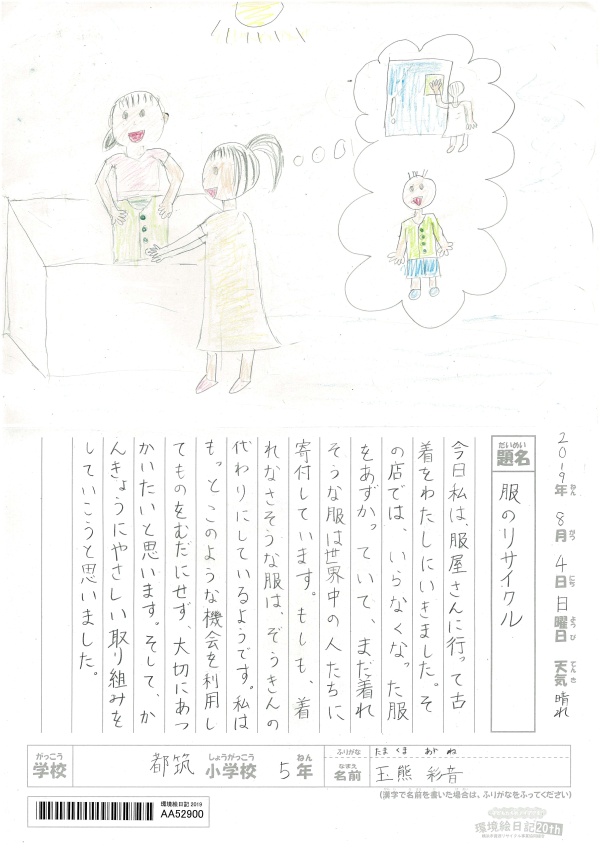 2019年 8月 4日 日曜日 天気 晴れ
ねん がつ にち ようび てんき
だいめい
題名
服のリサイクル
今日私は、服屋さんに行って古
着をわたしにいきました。そ
の店では、いらなくなった服
をあずかっていて、まだ着れ
そうな服は世界中の人たちに
寄付しています。もしも、着
れなさそうな服は、ぞうきんの
代わりにしているようです。私は
もっとこのような機会を利用し
てものをむだにせず、大切にあつ
かいたいと思います。そして、か
んきょうにやさしい取り組みを
していこうと思いました。
がっこう しょうがっこう ねん
学校 都筑 小学校 5年
ふりがな たまくま あやね
なまえ
名前 玉熊 彩音
(漢字で名前を書いた場合は、ふりがなをふってください)
環境絵日記 2019
AA52900
環境絵日記20th